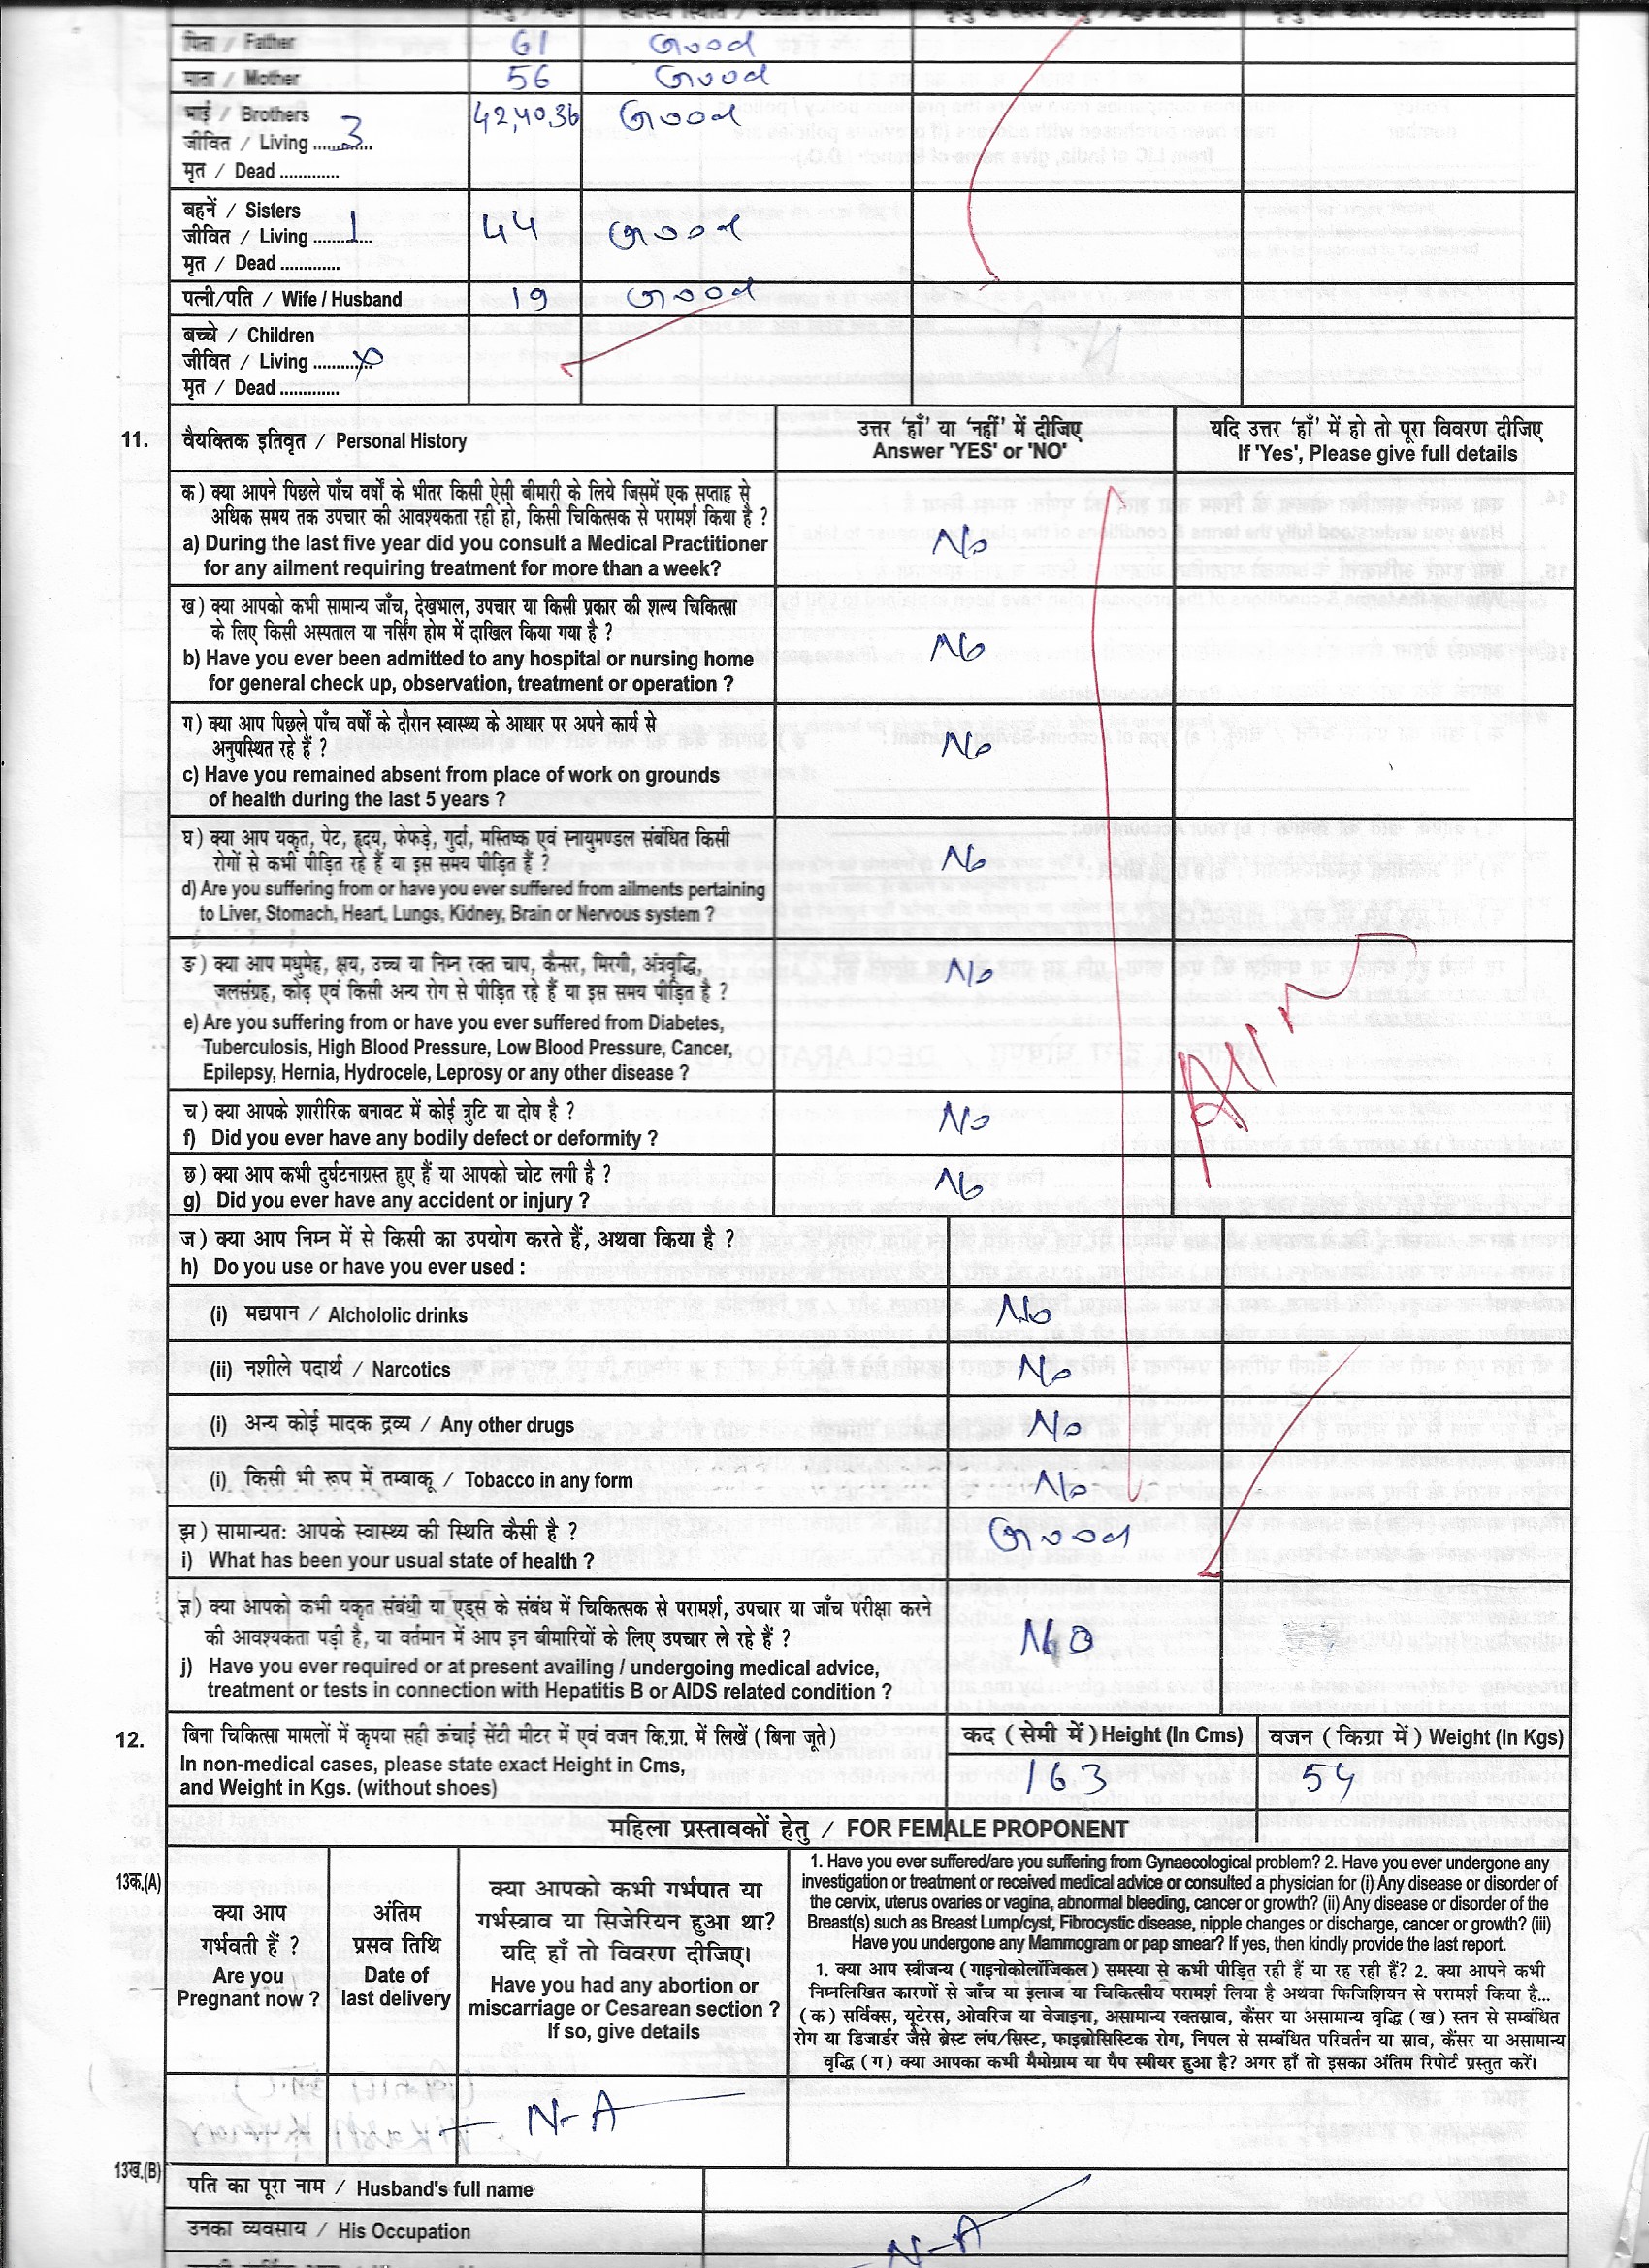 पिता / Father 61 Good
माता / Mother 56 Good
भाई / Brothers 42,40,36 Good
जीवित / Living ............ 3
मृत / Dead .............
बहनें / Sisters
जीवित / Living ............ 1 44 Good
मृत / Dead .............
पत्नी/पति / Wife / Husband 19 Good
बच्चे / Children
जीवित / Living ............ X
मृत / Dead .............
11. वैयक्तिक इतिवृत / Personal History
उत्तर 'हाँ' या 'नहीं' में दीजिए
Answer 'YES' or 'NO'
यदि उत्तर 'हाँ' में हो तो पूरा विवरण दीजिए
If 'Yes', Please give full details
क) क्या आपने पिछले पाँच वर्षों के भीतर किसी ऐसी बीमारी के लिये जिसमें एक सप्ताह से
अधिक समय तक उपचार की आवश्यकता रही हो, किसी चिकित्सक से परामर्श किया है ?
a) During the last five year did you consult a Medical Practitioner
for any ailment requiring treatment for more than a week?
No
ख) क्या आपको कभी सामान्य जाँच, देखभाल, उपचार या किसी प्रकार की शल्य चिकित्सा
के लिए किसी अस्पताल या नर्सिंग होम में दाखिल किया गया है ?
b) Have you ever been admitted to any hospital or nursing home
for general check up, observation, treatment or operation ?
No
ग) क्या आप पिछले पाँच वर्षों के दौरान स्वास्थ्य के आधार पर अपने कार्य से
अनुपस्थित रहे हैं ?
c) Have you remained absent from place of work on grounds
of health during the last 5 years ?
No
घ) क्या आप यकृत, पेट, हृदय, फेफड़े, गुर्दा, मस्तिष्क एवं स्नायुमण्डल संबंधित किसी
रोगों से कभी पीड़ित रहे हैं या इस समय पीड़ित हैं ?
d) Are you suffering from or have you ever suffered from ailments pertaining
to Liver, Stomach, Heart, Lungs, Kidney, Brain or Nervous system ?
No
ङ) क्या आप मधुमेह, क्षय, उच्च या निम्न रक्त चाप, कैन्सर, मिरगी, अंत्रवृद्धि,
जलसंग्रह, कोढ़ एवं किसी अन्य रोग से पीड़ित रहे हैं या इस समय पीड़ित है ?
e) Are you suffering from or have you ever suffered from Diabetes,
Tuberculosis, High Blood Pressure, Low Blood Pressure, Cancer,
Epilepsy, Hernia, Hydrocele, Leprosy or any other disease ?
No
च) क्या आपके शारीरिक बनावट में कोई त्रुटि या दोष है ?
f) Did you ever have any bodily defect or deformity ?
No
छ) क्या आप कभी दुर्घटनाग्रस्त हुए हैं या आपको चोट लगी है ?
g) Did you ever have any accident or injury ?
No
ज) क्या आप निम्न में से किसी का उपयोग करते हैं, अथवा किया है ?
h) Do you use or have you ever used :
(i) मद्यपान / Alchololic drinks No
(ii) नशीले पदार्थ / Narcotics No
(i) अन्य कोई मादक द्रव्य / Any other drugs No
(i) किसी भी रूप में तम्बाकू / Tobacco in any form No
झ) सामान्यतः आपके स्वास्थ्य की स्थिति कैसी है ?
i) What has been your usual state of health ?
Good
ञ) क्या आपको कभी यकृत संबंधी या एड्स के संबंध में चिकित्सक से परामर्श, उपचार या जाँच परीक्षा करने
की आवश्यकता पड़ी है, या वर्तमान में आप इन बीमारियों के लिए उपचार ले रहे हैं ?
j) Have you ever required or at present availing / undergoing medical advice,
treatment or tests in connection with Hepatitis B or AIDS related condition ?
No
12. बिना चिकित्सा मामलों में कृपया सही ऊंचाई सेंटी मीटर में एवं वजन कि.ग्रा. में लिखें (बिना जूते)
In non-medical cases, please state exact Height in Cms,
and Weight in Kgs. (without shoes)
कद ( सेमी में ) Height (In Cms) वजन ( किग्रा में ) Weight (In Kgs)
163 54
महिला प्रस्तावकों हेतु / FOR FEMALE PROPONENT
13क.(A)
क्या आप
गर्भवती हैं ?
Are you
Pregnant now ?
अंतिम
प्रसव तिथि
Date of
last delivery
क्या आपको कभी गर्भपात या
गर्भस्त्राव या सिजेरियन हुआ था?
यदि हाँ तो विवरण दीजिए।
Have you had any abortion or
miscarriage or Cesarean section ?
If so, give details
1. Have you ever suffered/are you suffering from Gynaecological problem? 2. Have you ever undergone any
investigation or treatment or received medical advice or consulted a physician for (i) Any disease or disorder of
the cervix, uterus ovaries or vagina, abnormal bleeding, cancer or growth? (ii) Any disease or disorder of the
Breast(s) such as Breast Lump/cyst, Fibrocystic disease, nipple changes or discharge, cancer or growth? (iii)
Have you undergone any Mammogram or pap smear? If yes, then kindly provide the last report.
1. क्या आप स्त्रीजन्य ( गाइनोकोलॉजिकल ) समस्या से कभी पीड़ित रही हैं या रह रही हैं? 2. क्या आपने कभी
निम्नलिखित कारणों से जाँच या इलाज या चिकित्सीय परामर्श लिया है अथवा फिजिशियन से परामर्श किया है...
( क ) सर्विक्स, यूटेरस, ओवरिज या वेजाइना, असामान्य रक्तस्राव, कैंसर या असामान्य वृद्धि ( ख ) स्तन से सम्बंधित
रोग या डिजार्डर जैसे ब्रेस्ट लंप/सिस्ट, फाइब्रोसिस्टिक रोग, निपल से सम्बंधित परिवर्तन या स्राव, कैंसर या असामान्य
वृद्धि ( ग ) क्या आपका कभी मैमोग्राम या पैप स्मीयर हुआ है? अगर हाँ तो इसका अंतिम रिपोर्ट प्रस्तुत करें।
N-A
13ख.(B)
पति का पूरा नाम / Husband's full name
उनका व्यवसाय / His Occupation
N-A